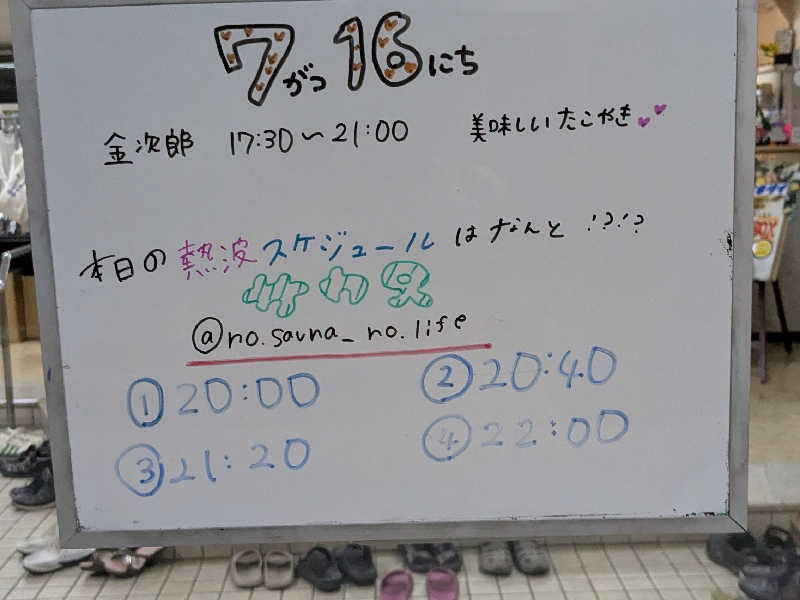 7がつ16にち
金次郎 17:30～21:00 美味しいたこやき
本日の熱波スケジュールはなんと!?!?
@no.sauna_no.life
①20:00 ②20:40
③21:20 ④22:00